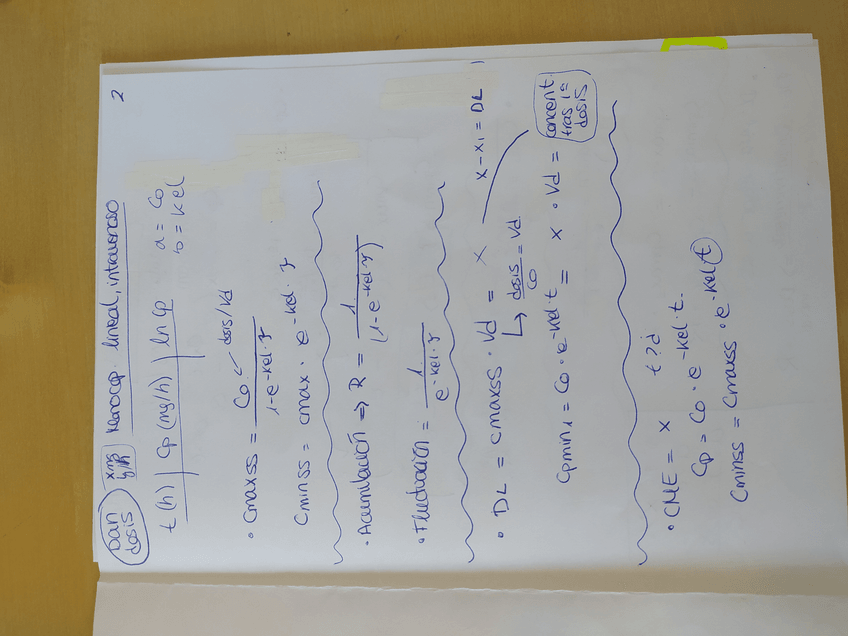 2
dan dosis x mg y/R Monocp. lineal, intravenoso
t (h) | Cp (mg/h) | ln Cp a = Co
b = Kel
• Cmaxss = Co / 1-e-kel·τ ← dosis/Vd
Cminss = Cmax · e-kel·τ
• Acumulación ⇒ R = 1 / (1-e-kel·τ)
• Fluctuación = 1 / e-kel·τ
• DL = Cmaxss · Vd = x x-x1 = DL
↳ dosis / Co = Vd
Cpmin1 = Co · e-kel·t = x · Vd = concent tras 1ª dosis
• CME = x t?
Cp = Co · e -kel·t.
Cminss = Cmaxss · e-kel t